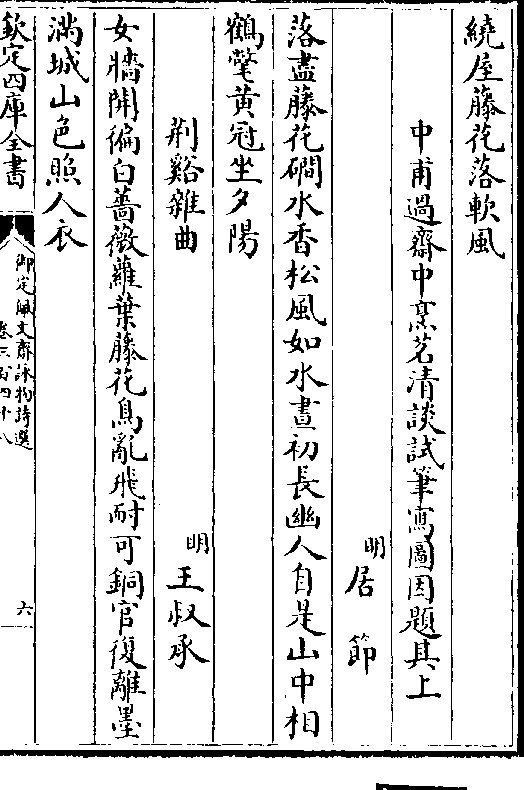 繞屋藤花落軟風
中甫過齋中烹茗清談試筆寫圖因題其上
明居節
落盡藤花磵水香松風如水晝初長幽人自是山中相
鶴氅黃冠坐夕陽
荆谿雜曲
明王叔承
女牆開徧白薔薇蘿葉藤花鳥亂飛耐可銅官復離墨
滿城山色照人衣
欽定四庫全書
御定佩文齋詠物詩選
卷三百四十八
六